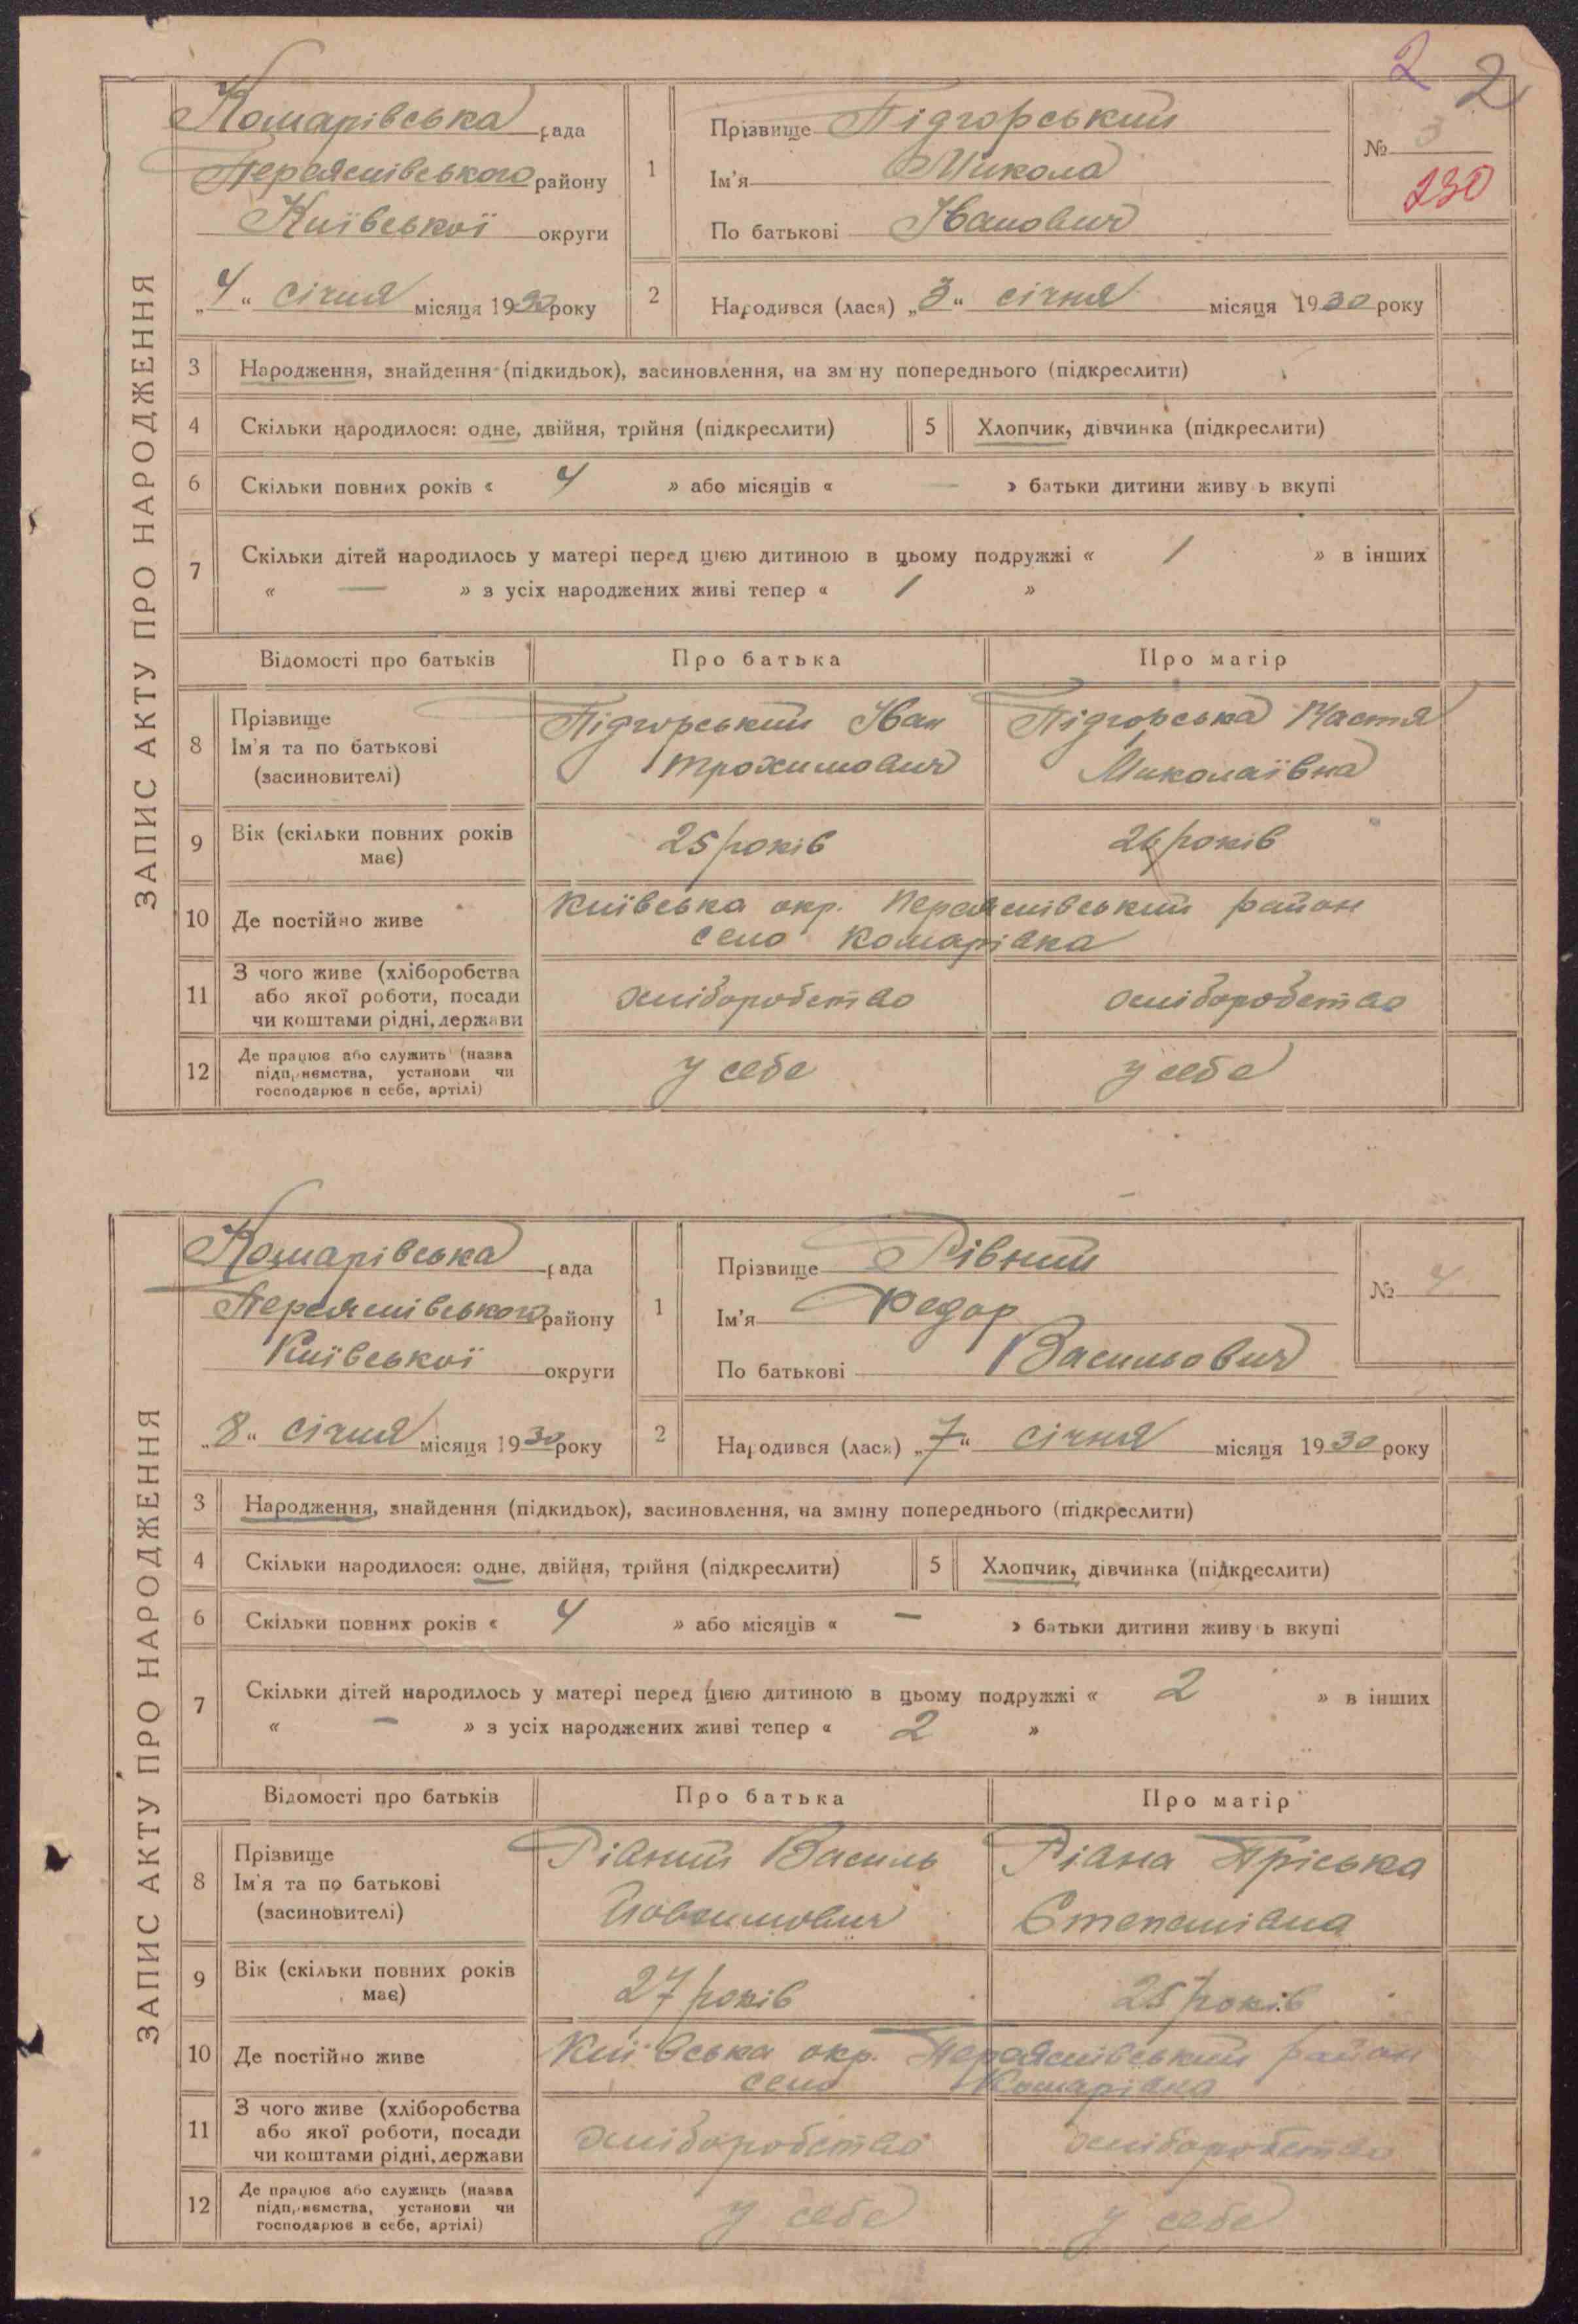 2 2
ЗАПИС АКТУ ПРО НАРОДЖЕННЯ
Комарівська рада
Переяслівського району
Київської округи
„4“ січня місяця 1930 року
1
Прізвище Підгорський
Ім'я Микола
По батькові Іванович
№ 3
230
2 Народився (лася) „3“ січня місяця 1930 року
3 Народження, знайдення (підкидьок), засиновлення, на зміну попереднього (підкреслити)
4 Скільки народилося: одне, двійня, трійня (підкреслити) 5 Хлопчик, дівчинка (підкреслити)
6 Скільки повних років « 4 » або місяців « — » батьки дитини живуть вкупі
7 Скільки дітей народилось у матері перед цією дитиною в цьому подружжі « 1 » в інших
« — » з усіх народжених живі тепер « 1 »
Відомості про батьків Про батька Про матір
8 Прізвище
Ім'я та по батькові
(засиновителі)
Підгорський Іван
Трохимович
Підгорська Настя
Миколаївна
9 Вік (скільки повних років
має)
25 років 26 років
10 Де постійно живе
Київська окр. Переяслівський район
село Комарівка
11 З чого живе (хліборобства
або якої роботи, посади
чи коштами рідні, держави
хліборобство хліборобство
12 Де працює або служить (назва
підприємства, установи чи
господарює в себе, артілі)
у себе у себе
ЗАПИС АКТУ ПРО НАРОДЖЕННЯ
Комарівська рада
Переяслівського району
Київської округи
„8“ січня місяця 1930 року
1
Прізвище Рівний
Ім'я Федор
По батькові Васильович
№ 4
2 Народився (лася) „7“ січня місяця 1930 року
3 Народження, знайдення (підкидьок), засиновлення, на зміну попереднього (підкреслити)
4 Скільки народилося: одне, двійня, трійня (підкреслити) 5 Хлопчик, дівчинка (підкреслити)
6 Скільки повних років « 4 » або місяців « — » батьки дитини живуть вкупі
7 Скільки дітей народилось у матері перед цією дитиною в цьому подружжі « 2 » в інших
« — » з усіх народжених живі тепер « 2 »
Відомості про батьків Про батька Про матір
8 Прізвище
Ім'я та по батькові
(засиновителі)
Рівний Василь
Рівна Пріська
Степанівна
9 Вік (скільки повних років
має)
27 років 25 років
10 Де постійно живе
Київська окр. Переяслівський район
село Комарівка
11 З чого живе (хліборобства
або якої роботи, посади
чи коштами рідні, держави
хліборобство хліборобство
12 Де працює або служить (назва
підприємства, установи чи
господарює в себе, артілі)
у себе у себе